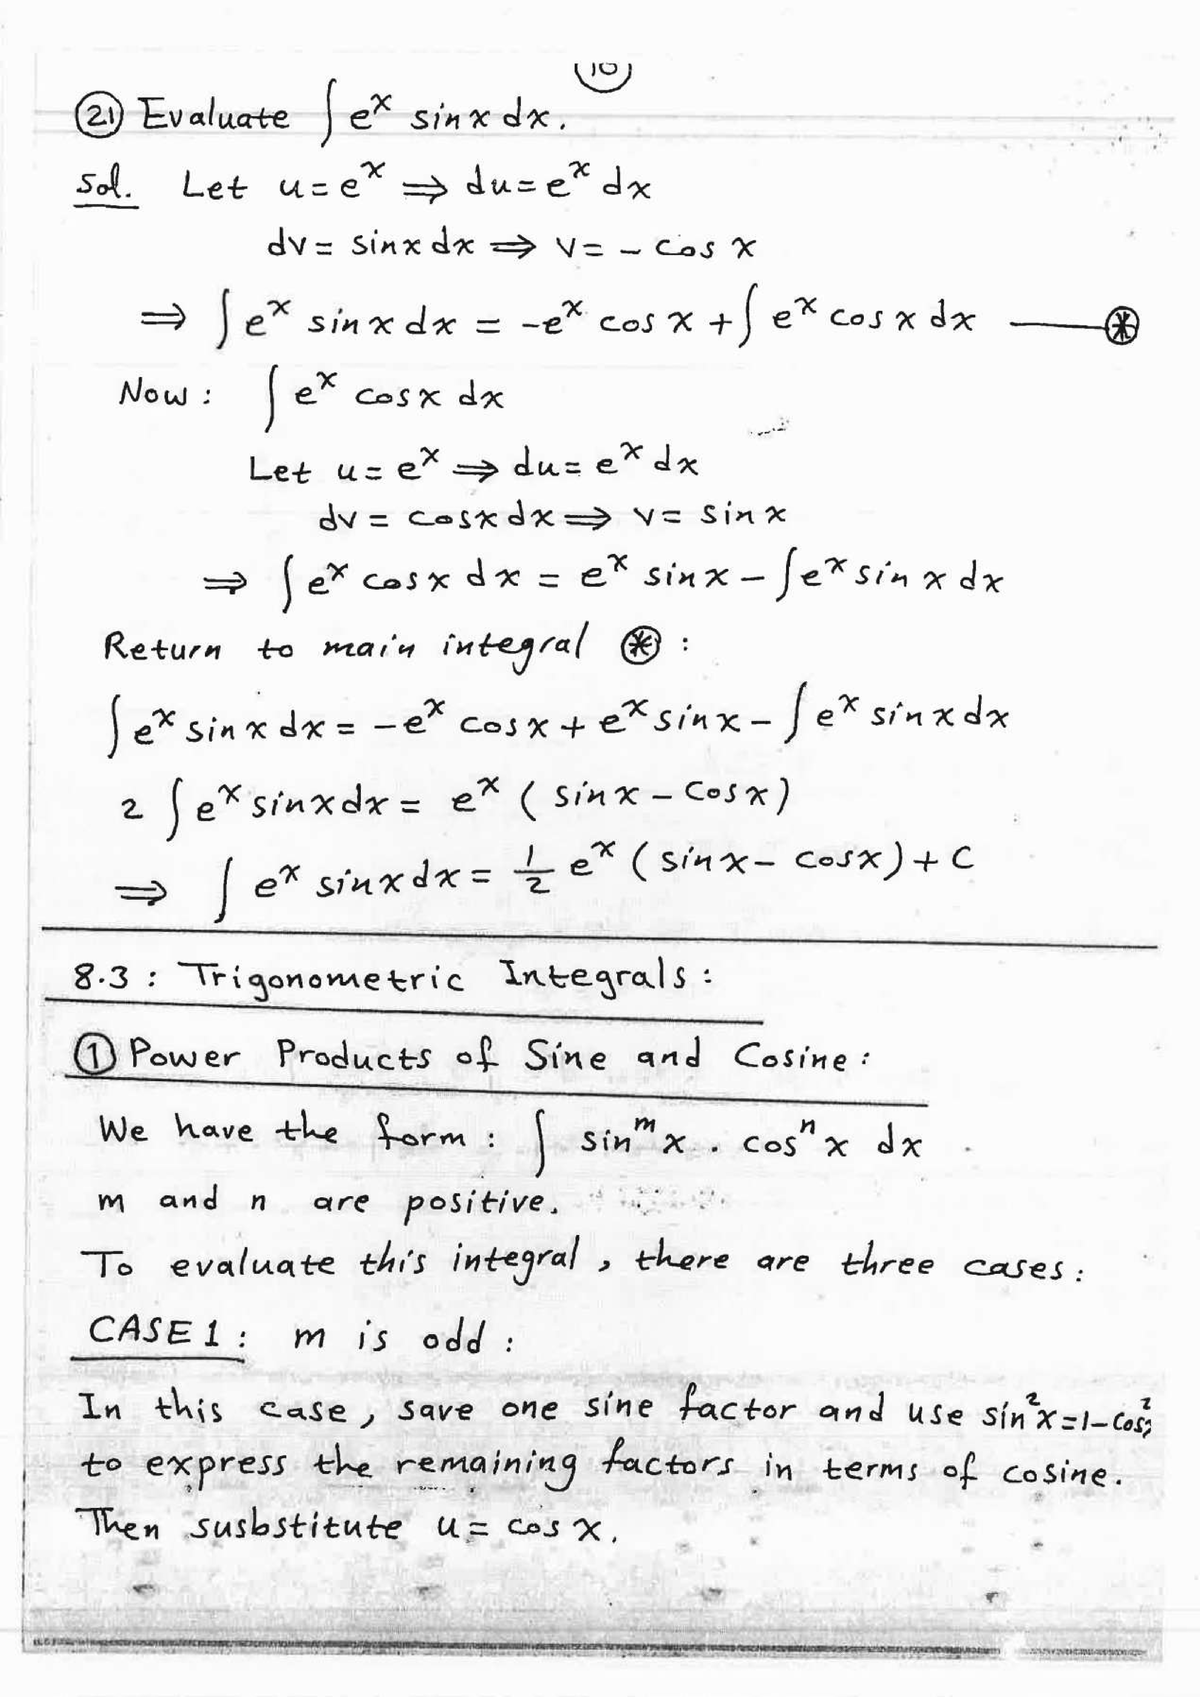 16
21 Evaluate ∫ eˣ sin x dx.
Sol. Let u = eˣ ⟹ du = eˣ dx
dv = sin x dx ⟹ v = - cos x
⟹ ∫ eˣ sin x dx = -eˣ cos x + ∫ eˣ cos x dx —— ⊛
Now : ∫ eˣ cos x dx
Let u = eˣ ⟹ du = eˣ dx
dv = cos x dx ⟹ v = sin x
⟹ ∫ eˣ cos x dx = eˣ sin x - ∫ eˣ sin x dx
Return to main integral ⊛ :
∫ eˣ sin x dx = -eˣ cos x + eˣ sin x - ∫ eˣ sin x dx
2 ∫ eˣ sin x dx = eˣ ( sin x - cos x )
⟹ ∫ eˣ sin x dx = 1/2 eˣ ( sin x - cos x ) + C
8.3 : Trigonometric Integrals :
1 Power Products of Sine and Cosine :
We have the form : ∫ sinᵐ x . cosⁿ x dx
m and n are positive.
To evaluate this integral, there are three cases :
CASE 1 : m is odd :
In this case, save one sine factor and use sin²x = 1 - cos²
to express the remaining factors in terms of cosine.
Then susbstitute u = cos x.